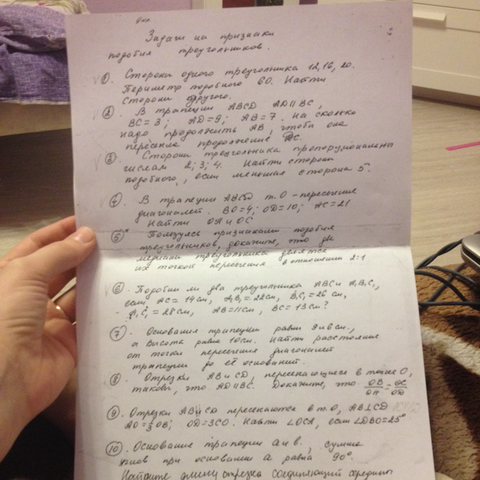 Задачи на признаки
подобия треугольников.
1. Стороны одного треугольника 12, 16, 20.
Периметр подобного 60. Найти
стороны другого.
2. В трапеции ABCD AD||BC,
BC=3; AD=9; AB=7. На сколько
надо продолжить AB, чтобы она
пересекла продолжение
3. Стороны треугольника пропорциональны
числам 2; 3; 4. Найти стороны
подобного, если меньшая сторона 5.
4. В трапеции ABCD т.О - пересечение
диагоналей. BO=4; OD=10; AC=21
Найти OA и OC
5. Пользуясь признаками подобия
треугольников, докажите, что две
медианы треугольника делятся
их точкой пересечения в отношении 2:1
6. Подобны ли два треугольника ABC и A₁B₁C₁,
если AC=14см, =28см, B₁C₁=26 см,
=28см, AB=11см, BC=13см?
7. Основания трапеции равны 9 и 6 см.,
а высота равна 10см. Найти расстояние
от точки пересечения диагоналей
трапеции до её оснований.
8. Отрезки AB и CD, пересекающиеся в точке О,
таковы, что AD||BC. Докажите, что
9. Отрезки AB и CD пересекаются в т.О, AB⊥CD
AO=3OB; OD=3CO. Найти ∠OCA, если ∠DBO=25°
10. Основание трапеции a и b. Сумма
углов при основании a равна 90°.
Найдите длину отрезка соединяющий середины